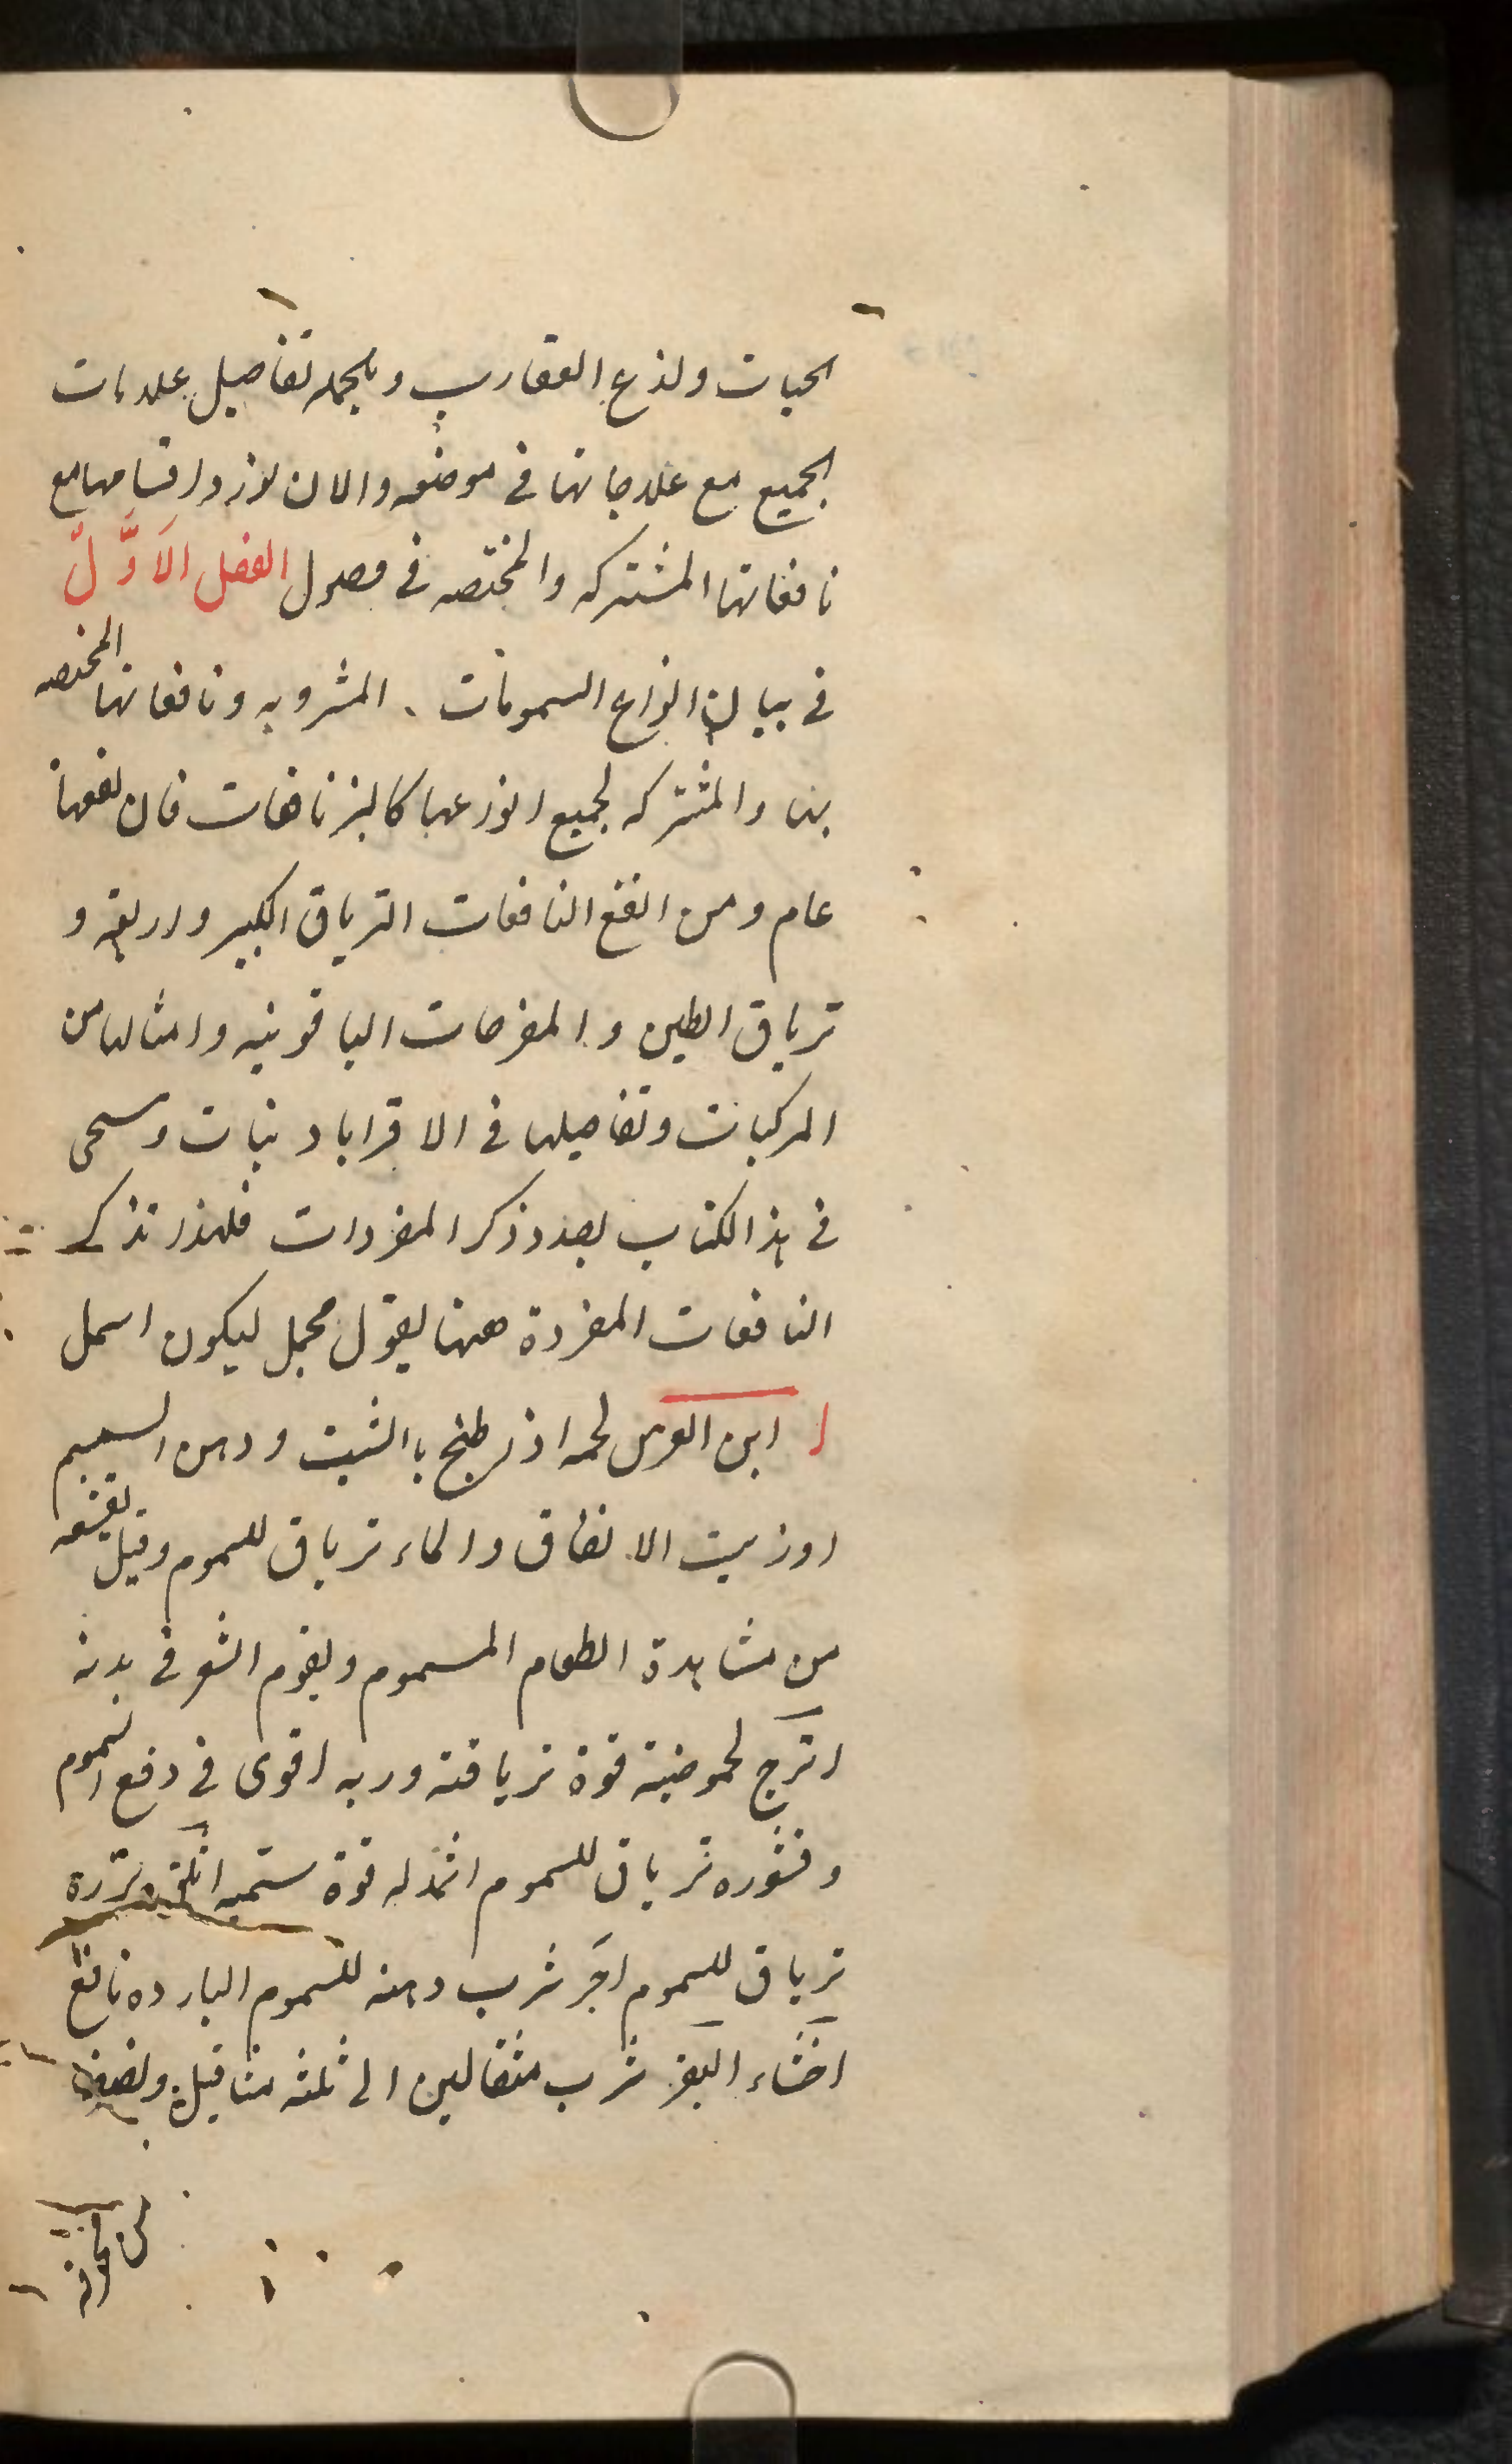 الحيات ولذع العقارب وبالجمله تفاصيل علامات
الجميع مع علاجاتها فى موضعه والان نورد اقسامها مع
نافعاتها المشتركه والمختصه فى فصول الفصل الاَوَّلُ
فى بيان انواع السمومات المشروبه ونافعاتها المختصه
بها والمشتركه لجميع انواعها كالبزنافعات فان نفعها
عام ومن انفع النافعات الترياق الكبير والاربعه و
ترياق الطين والمفرحات الياقوتيه وامثالها من
المركبات وتفاصيلها فى الاقراباد ينات وستحى
فى هذا الكتاب بعد ذكر المفردات فلهذا نذكر
النافعات المفردة ههنا بقول مجمل ليكون اسهل
ا ابن العرس لحمه اذا طبخ باالشبت ودهن السمسم
اوزيت الانفاق والماء ترياق للسموم وقيل يقشعر
من مشاهدة الطعام المسموم ويقوم الشعر فى بدنه
اترج لحموضيته قوة ترياقته وربه اقوى فى دفع السموم
وقشوره ترياق للسموم اثمد له قوة ستميه
ترياق للسموم اجر شرب دهنه للسموم البارده نافع
اخثاء البقر شرب مثقالين الى ثلثه مثاقيل ونصف